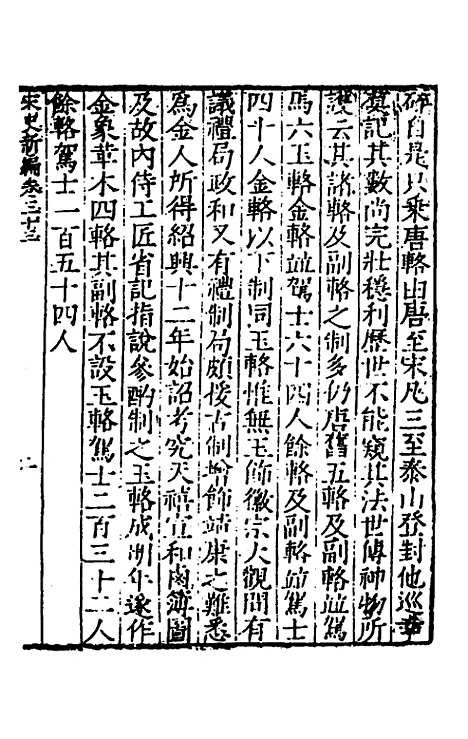 碎自是只乘唐輅由唐至宋凡三至泰山登封他巡幸
莫記其數尚完壯穩利歷世不能窺其法世傳神物所
護云其諸輅及副輅之制多仍唐舊五輅及副輅並駕
馬六玉輅金輅並駕士六十四人餘輅及副輅並駕士
四十人金輅以下制同玉輅惟無玉飾徽宗大觀間有
議禮局政和又有禮制局頗授古制增飾靖康之難悉
爲金人所得紹興十二年始詔考究天禧宣和鹵簿圖
及故內侍工匠省記指說參酌制之玉輅成明年遂作
金象革木四輅其副輅不設玉輅駕士二百三十二人
餘輅駕士一百五十四人
宋史新編卷三十三